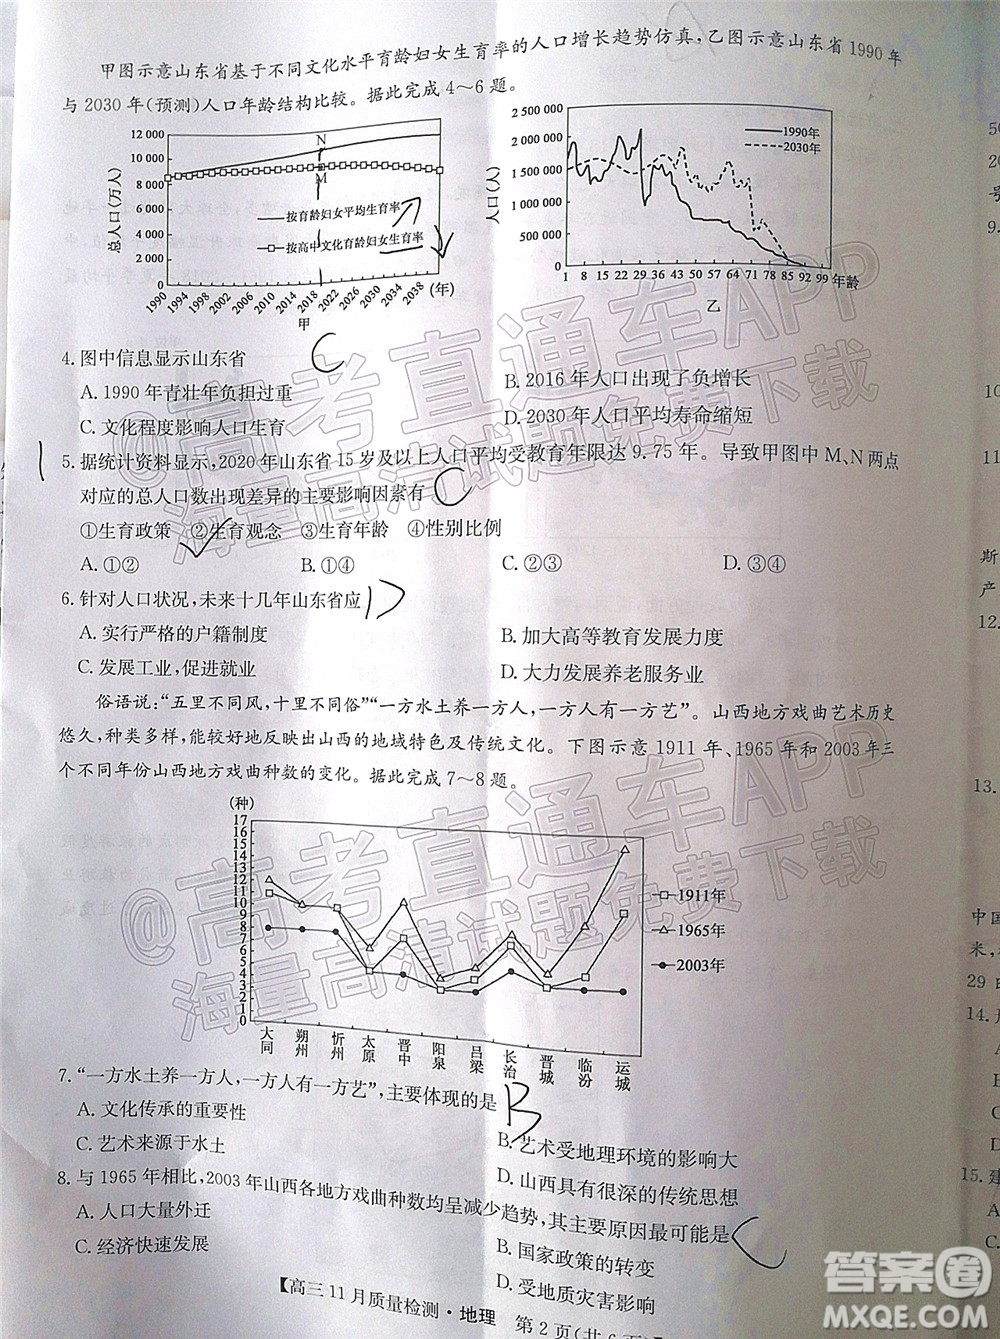 甲图示意山东省基于不同文化水平育龄妇女生育率的人口增长趋势仿真,乙图示意山东省1990年
与2030年(预测)人口年龄结构比较。据此完成4～6题。
总人口(万人)
12 000
10 000
8 000
6 000
4 000
2 000
0
N
M
按育龄妇女平均生育率
按高中文化育龄妇女生育率
1990
1994
1998
2002
2006
2010
2014
2018
2022
2026
2030
2034
2038
(年)
甲
人口(人)
2 500 000
2 000 000
1 500 000
1 000 000
500 000
0
1990年
2030年
1 8 15 22 29 36 43 50 57 64 71 78 85 92 99 年龄
乙
4. 图中信息显示山东省
C
A. 1990年青壮年负担过重
B. 2016年人口出现了负增长
C. 文化程度影响人口生育
D. 2030年人口平均寿命缩短
5. 据统计资料显示,2020年山东省15岁及以上人口平均受教育年限达9.75年。导致甲图中M、N两点
对应的总人口数出现差异的主要影响因素有
C
①生育政策 ②生育观念 ③生育年龄 ④性别比例
A. ①② B. ①④ C. ②③ D. ③④
6. 针对人口状况,未来十几年山东省应
D
A. 实行严格的户籍制度
B. 加大高等教育发展力度
C. 发展工业,促进就业
D. 大力发展养老服务业
俗语说:“五里不同风,十里不同俗”“一方水土养一方人,一方人有一方艺”。山西地方戏曲艺术历史
悠久,种类多样,能较好地反映出山西的地域特色及传统文化。下图示意1911年、1965年和2003年三
个不同年份山西地方戏曲种数的变化。据此完成7～8题。
(种)
17
16
15
14
13
12
11
10
9
8
7
6
5
4
3
2
1
0
1911年
1965年
2003年
大同 朔州 忻州 太原 晋中 阳泉 吕梁 长治 晋城 临汾 运城
7. “一方水土养一方人,一方人有一方艺”,主要体现的是
B
A. 文化传承的重要性
B. 艺术受地理环境的影响大
C. 艺术来源于水土
D. 山西具有很深的传统思想
8. 与1965年相比,2003年山西各地方戏曲种数均呈减少趋势,其主要原因最可能是
C
A. 人口大量外迁
B. 国家政策的转变
C. 经济快速发展
D. 地质灾害影响
【高三11月质量检测·地理 第2页(共6页)】
@高考直通车APP
海量高清试题免费下载
@高考直通车APP
海量高清试题免费下载
9.
10
11
斯
产
12.
13.
中国
米,
29
14.
A
B
C
D
15. 建
A
C
答案圈
MXQE.COM